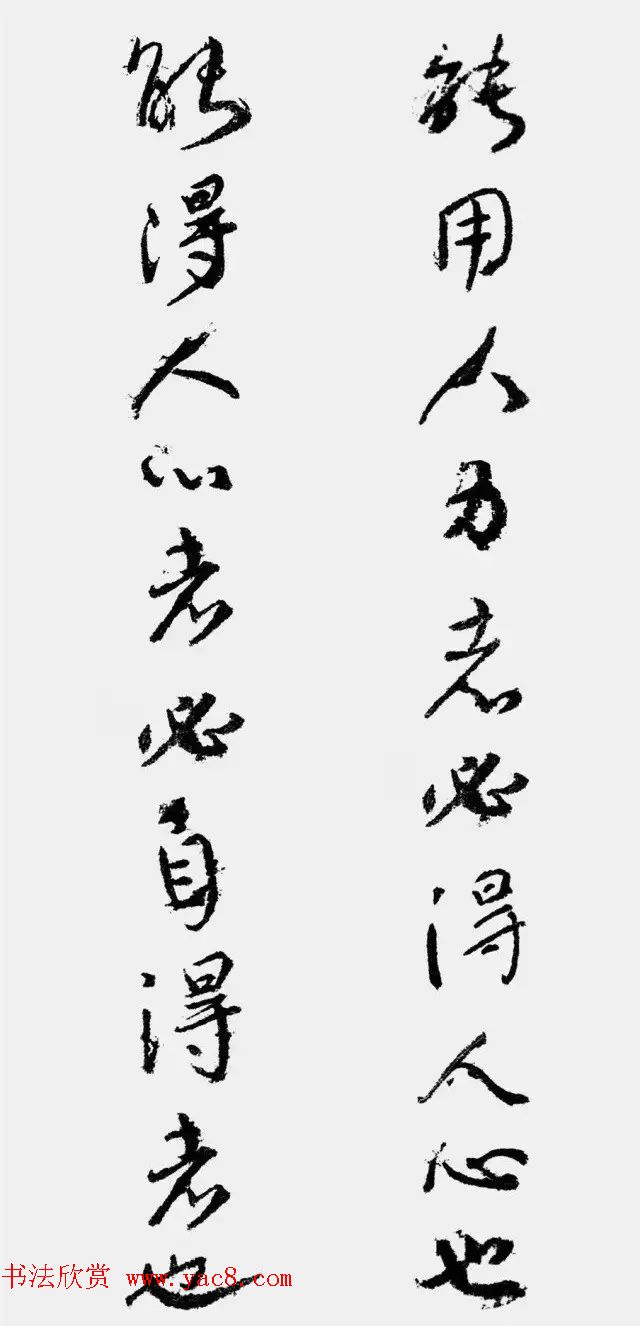 能用人力者必得人心也
能得人心者必自得者也
书法欣赏 www.yac8.com